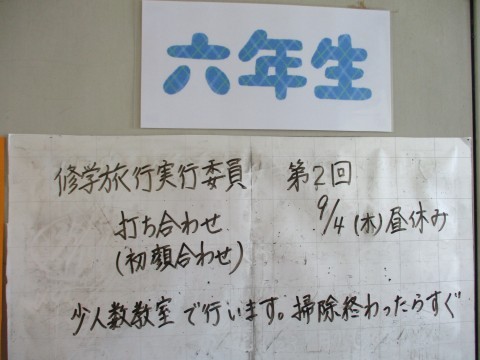 六年生
修学旅行実行委員 第2回
打ち合わせ 9/4(木)昼休み
(初顔合わせ)
少人数教室で行います。掃除終わったらすぐ